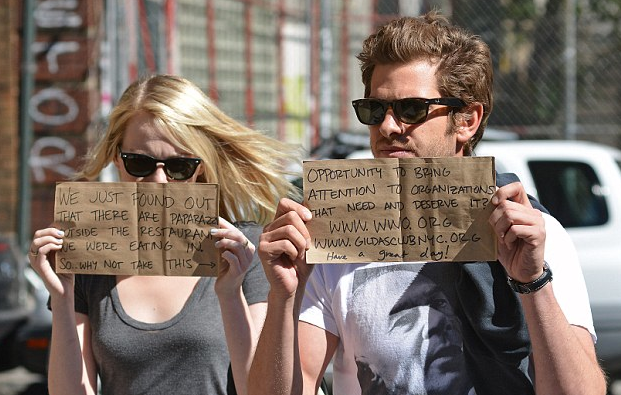 WE JUST FOUND OUT
THAT THERE ARE PAPARAZZI
OUTSIDE THE RESTAURANT
WE WERE EATING IN
SO...WHY NOT TAKE THIS →
OPPORTUNITY TO BRING
ATTENTION TO ORGANIZATIONS
THAT NEED AND DESERVE IT?
WWW.WWO.ORG
WWW.GILDASCLUBNYC.ORG
Have a great day!